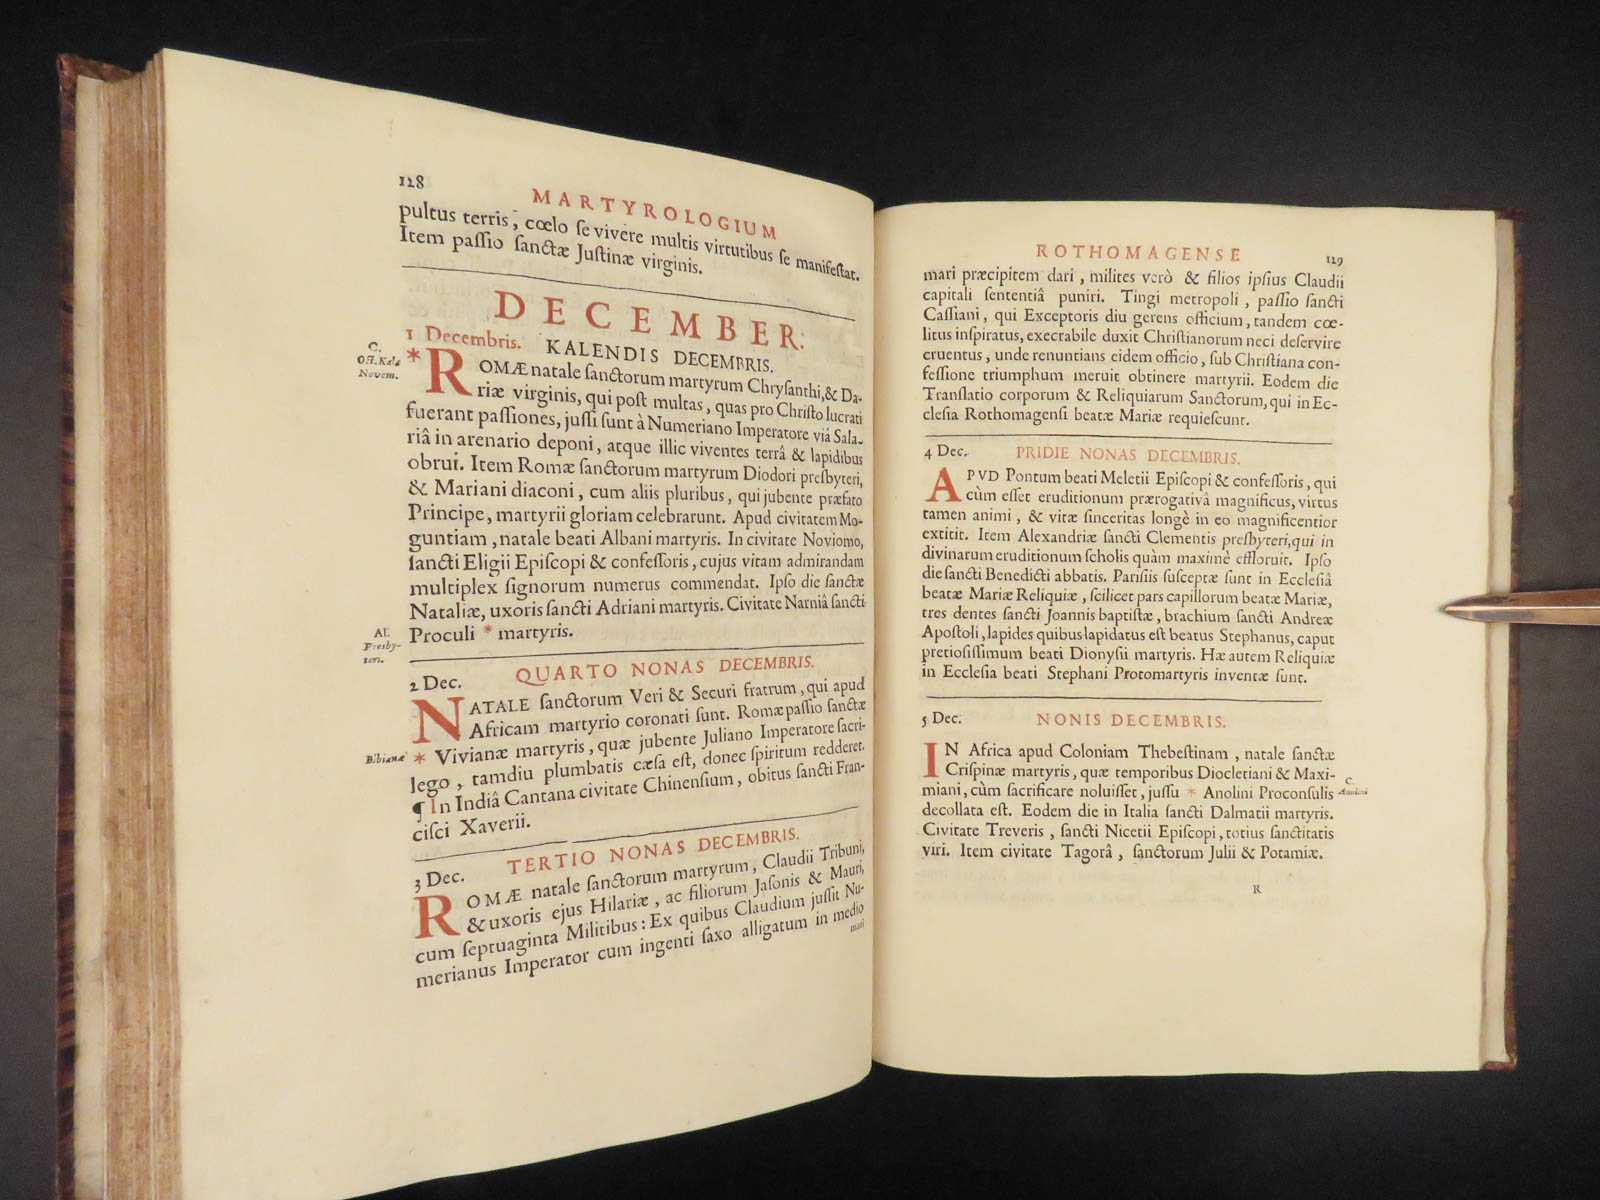 128
MARTYROLOGIUM
pultus terris, cœlo ſe vivere multis virtutibus ſe manifeſtat.
Item paſſio ſanctæ Juſtinæ virginis.
DECEMBER.
1 Decembris. KALENDIS DECEMBRIS.
C.
Oct. Kal.
Novem.
* ROMÆ natale ſanctorum martyrum Chryſanthi, & Da-
riæ virginis, qui poſt multas, quas pro Chriſto lucrati
fuerant paſſiones, juſſi ſunt à Numeriano Imperatore viâ Sala-
riâ in arenario deponi, atque illic viventes terrâ & lapidibus
obrui. Item Romæ ſanctorum martyrum Diodori preſbyteri,
& Mariani diaconi, cum aliis pluribus, qui jubente præfato
Principe, martyrii gloriam celebrarunt. Apud civitatem Mo-
guntiam, natale beati Albani martyris. In civitate Noviomo,
ſancti Eligii Epiſcopi & confeſſoris, cujus vitam admirandam
multiplex ſignorum numerus commendat. Ipſo die ſanctæ
Nataliæ, uxoris ſancti Adriani martyris. Civitate Narniâ ſancti
Proculi * martyris.
Al.
Presby-
teri.
2 Dec. QUARTO NONAS DECEMBRIS.
NATALE ſanctorum Veri & Securi fratrum, qui apud
Africam martyrio coronati ſunt. Romæ paſſio ſanctæ
* Vivianæ martyris, quæ jubente Juliano Imperatore ſacri-
Bibianæ
lego, tamdiu plumbatis cæſa eſt, donec ſpiritum redderet.
¶ In Indiâ Cantana civitate Chinenſium, obitus ſancti Fran-
ciſci Xaverii.
3 Dec. TERTIO NONAS DECEMBRIS.
ROMÆ natale ſanctorum martyrum, Claudii Tribuni,
& uxoris ejus Hilariæ, ac filiorum Jaſonis & Mauri,
cum ſeptuaginta Militibus: Ex quibus Claudium juſſit Nu-
merianus Imperator cum ingenti ſaxo alligatum in medio
mari
ROTHOMAGENSE
129
mari præcipitem dari, milites verò & filios ipſius Claudii
capitali ſententiâ puniri. Tingi metropoli, paſſio ſancti
Caſſiani, qui Exceptoris diu gerens officium, tandem cœ-
litus inſpiratus, execrabile duxit Chriſtianorum neci deſervire
cruentus, unde renuntians eidem officio, ſub Chriſtiana con-
feſſione triumphum meruit obtinere martyrii. Eodem die
Tranſlatio corporum & Reliquiarum Sanctorum, qui in Ec-
cleſia Rothomagenſi beatæ Mariæ requieſcunt.
4 Dec. PRIDIE NONAS DECEMBRIS.
APVD Pontum beati Meletii Epiſcopi & confeſſoris, qui
cùm eſſet eruditionum prærogativâ magnificus, virtus
tamen animi, & vitæ ſinceritas longè in eo magnificentior
extitit. Item Alexandriæ ſancti Clementis preſbyteri, qui in
divinarum eruditionum ſcholis quàm maximè effloruit. Ipſo
die ſancti Benedicti abbatis. Pariſiis ſuſceptæ ſunt in Eccleſiâ
beatæ Mariæ Reliquiæ, ſcilicet pars capillorum beatæ Mariæ,
tres dentes ſancti Joannis baptiſtæ, brachium ſancti Andreæ
Apoſtoli, lapides quibus lapidatus eſt beatus Stephanus, caput
pretioſiſſimum beati Dionyſii martyris. Hæ autem Reliquiæ
in Eccleſia beati Stephani Protomartyris inventæ ſunt.
5 Dec. NONIS DECEMBRIS.
IN Africa apud Coloniam Thebeſtinam, natale ſanctæ
Criſpinæ martyris, quæ temporibus Diocletiani & Maxi-
miani, cùm ſacrificare noluiſſet, juſſu * Anolini Proconſulis
C.
Anolini
decollata eſt. Eodem die in Italia ſancti Dalmatii martyris.
Civitate Treveris, ſancti Nicetii Epiſcopi, totius ſanctitatis
viri. Item civitate Tagorâ, ſanctorum Julii & Potamiæ.
R